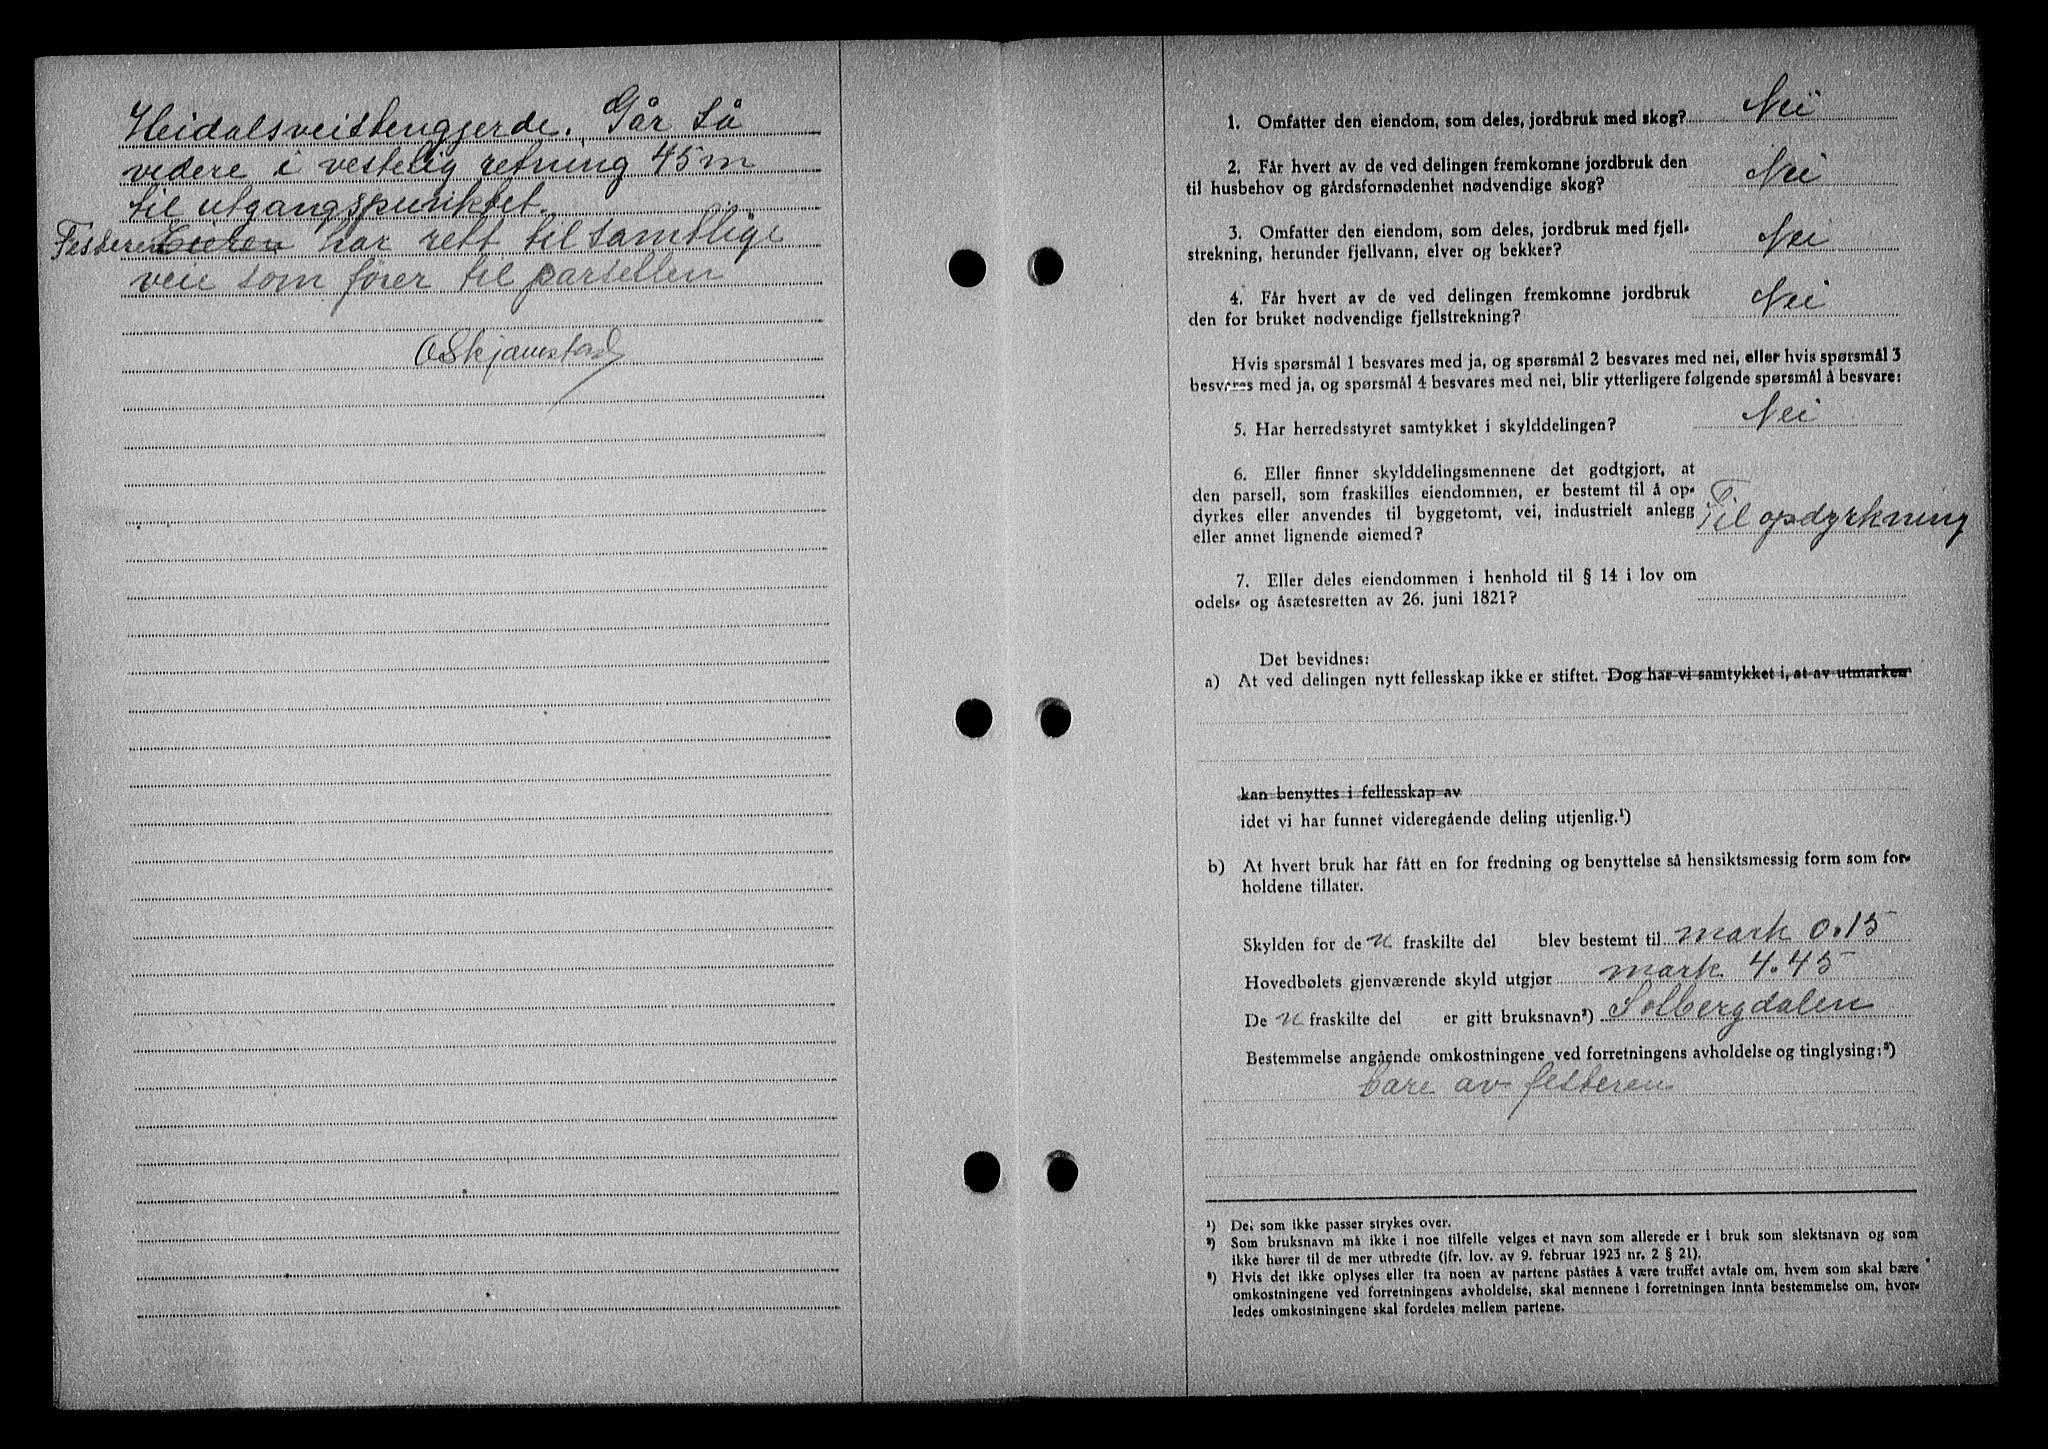 Heidalsveistengjerde. Går så
videre i vestelig retning 45 m
til utgangspunktet.
Festeren Eieren har rett til samtlige
veie som fører til parsellen
1. Omfatter den eiendom, som deles, jordbruk med skog? Nei
2. Får hvert av de ved delingen fremkomne jordbruk den
til husbehov og gårdsfornødenhet nødvendige skog? Nei
3. Omfatter den eiendom, som deles, jordbruk med fjell-
strekning, herunder fjellvann, elver og bekker? Nei
4. Får hvert av de ved delingen fremkomne jordbruk
den for bruket nødvendige fjellstrekning? Nei
Hvis spørsmål 1 besvares med ja, og spørsmål 2 besvares med nei, eller hvis spørsmål 3
besvares med ja, og spørsmål 4 besvares med nei, blir ytterligere følgende spørsmål å besvare:
5. Har herredsstyret samtykket i skylddelingen? Nei
6. Eller finner skylddelingsmennene det godtgjort, at
den parsell, som fraskilles eiendommen, er bestemt til å op-
dyrkes eller anvendes til byggetomt, vei, industrielt anlegg
eller annet lignende øiemed? Til opdyrkning
7. Eller deles eiendommen i henhold til § 14 i lov om
odels- og åsætesretten av 26. juni 1821?
Det bevidnes:
a) At ved delingen nytt fellesskap ikke er stiftet. Dog har vi samtykket i, at av utmarken
kan benyttes i fellesskap av
idet vi har funnet videregående deling utjenlig.¹)
b) At hvert bruk har fått en for fredning og benyttelse så hensiktsmessig form som for-
holdene tillater.
Skylden for de n fraskilte del blev bestemt til mark 0.15
Hovedbølets gjenværende skyld utgjør mark 4.45
De n fraskilte del er gitt bruksnavn²) Solbergdalen
Bestemmelse angående omkostningene ved forretningens avholdelse og tinglysing:³)
bare av festeren
¹) Det som ikke passer strykes over.
²) Som bruksnavn må ikke i noe tilfelle velges et navn som allerede er i bruk som slektsnavn og som
ikke hører til de mer utbredte (jfr. lov. av 9. februar 1923 nr. 2 § 21).
³) Hvis det ikke oplyses eller fra noen av partene påståes å være truffet avtale om, hvem som skal bære
omkostningene ved forretningens avholdelse, skal mennene i forretningen innta bestemmelse om, hvor-
ledes omkostningene skal fordeles mellem partene.